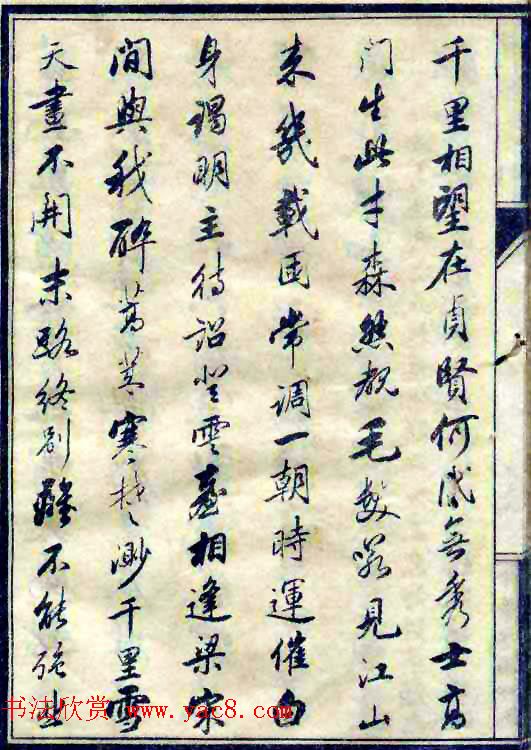 千里相望在貞賢何代無秀士高
门生此才森然覩毛髮若見江山
来幾載困常調一朝時運催白
身謁明主待詔登雲臺相逢梁宋
間與我醉蒿莱寒楚渺千里雪
天晝不開末路終别離不能强悲
书法欣赏 www.yac8.com